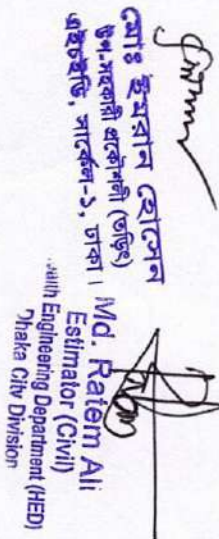 মোঃ ইমরান হোসেন
উপ-সহকারী প্রকৌশলী (তড়িৎ)
এইচইডি, সার্কেল-১, ঢাকা।
Md. Ratem Ali
Estimator (Civil)
Health Engineering Department (HED)
Dhaka City Division